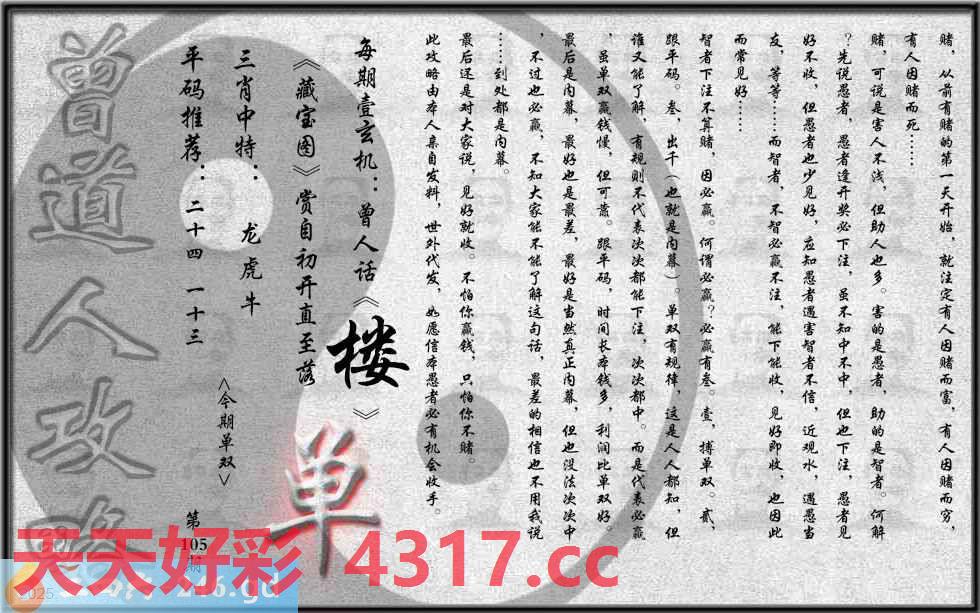 赌，从前有赌的第一天开始，就注定有人因赌而富，有人因赌而穷，
有人因赌而死……
赌，可说是害人不浅，但助人也多。害的是愚者，助的是智者。何解
？先说愚者，愚者逢开奖必下注，虽不知中不中，但也下注，愚者见
好不收，但愚者也少见好，应知愚者遇害智者不信，近观水，遇愚当
友，等等……而智者，不智必赢不注，能下能收，见好即收，也因此
而常见好……
智者下注不算赌，因必赢。何谓必赢？必赢有叁。壹，搏单双。贰，
跟平码。叁，出千（也就是内幕）。单双有规律，这是人人都知，但
谁又能了解，有规则不代表次次都能下注，次次都中。而是代表必赢
，虽单双赢钱慢，但可靠。跟平码，时间长本钱多，利润比单双好。
最后是内幕，最好也是最差，最好是当然真正内幕，但也没法次次中
，不过也必赢，不知大家能不能了解这句话，最差的相信也不用我说
……到处都是内幕。
最后还是对大家说，见好就收。不怕你赢钱，只怕你不赌。
此攻略由本人亲自发料，世外代发，如愿信本愚者必有机会收手。
每期壹玄机：曾人话《楼》
《藏宝图》赏自初开直至落
三肖中特：龙虎牛
平码推荐：二十四 一十三
<今期单双>
单
第
105
期
曾道人攻略
天天好彩 4317.cc
2025
246.gd